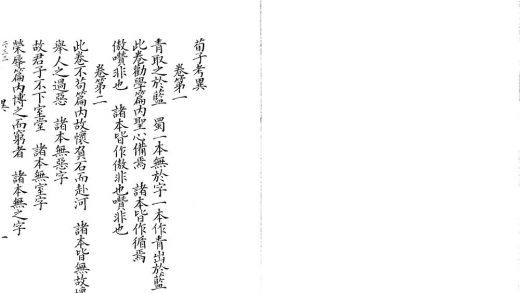 荀子考異
卷第一
青取之於藍 蜀一本無於字一本作青出於藍
此卷勸學篇內聖心備焉 諸本皆作循焉
傲囋非也 諸本皆作傲非也囋非也
卷第二
此卷不苟篇內故懷負石而赴河 諸本皆無故懷
舉人之過惡 諸本無惡字
故君子不下室堂 諸本無室字
榮辱篇內博之而窮者 諸本無之字